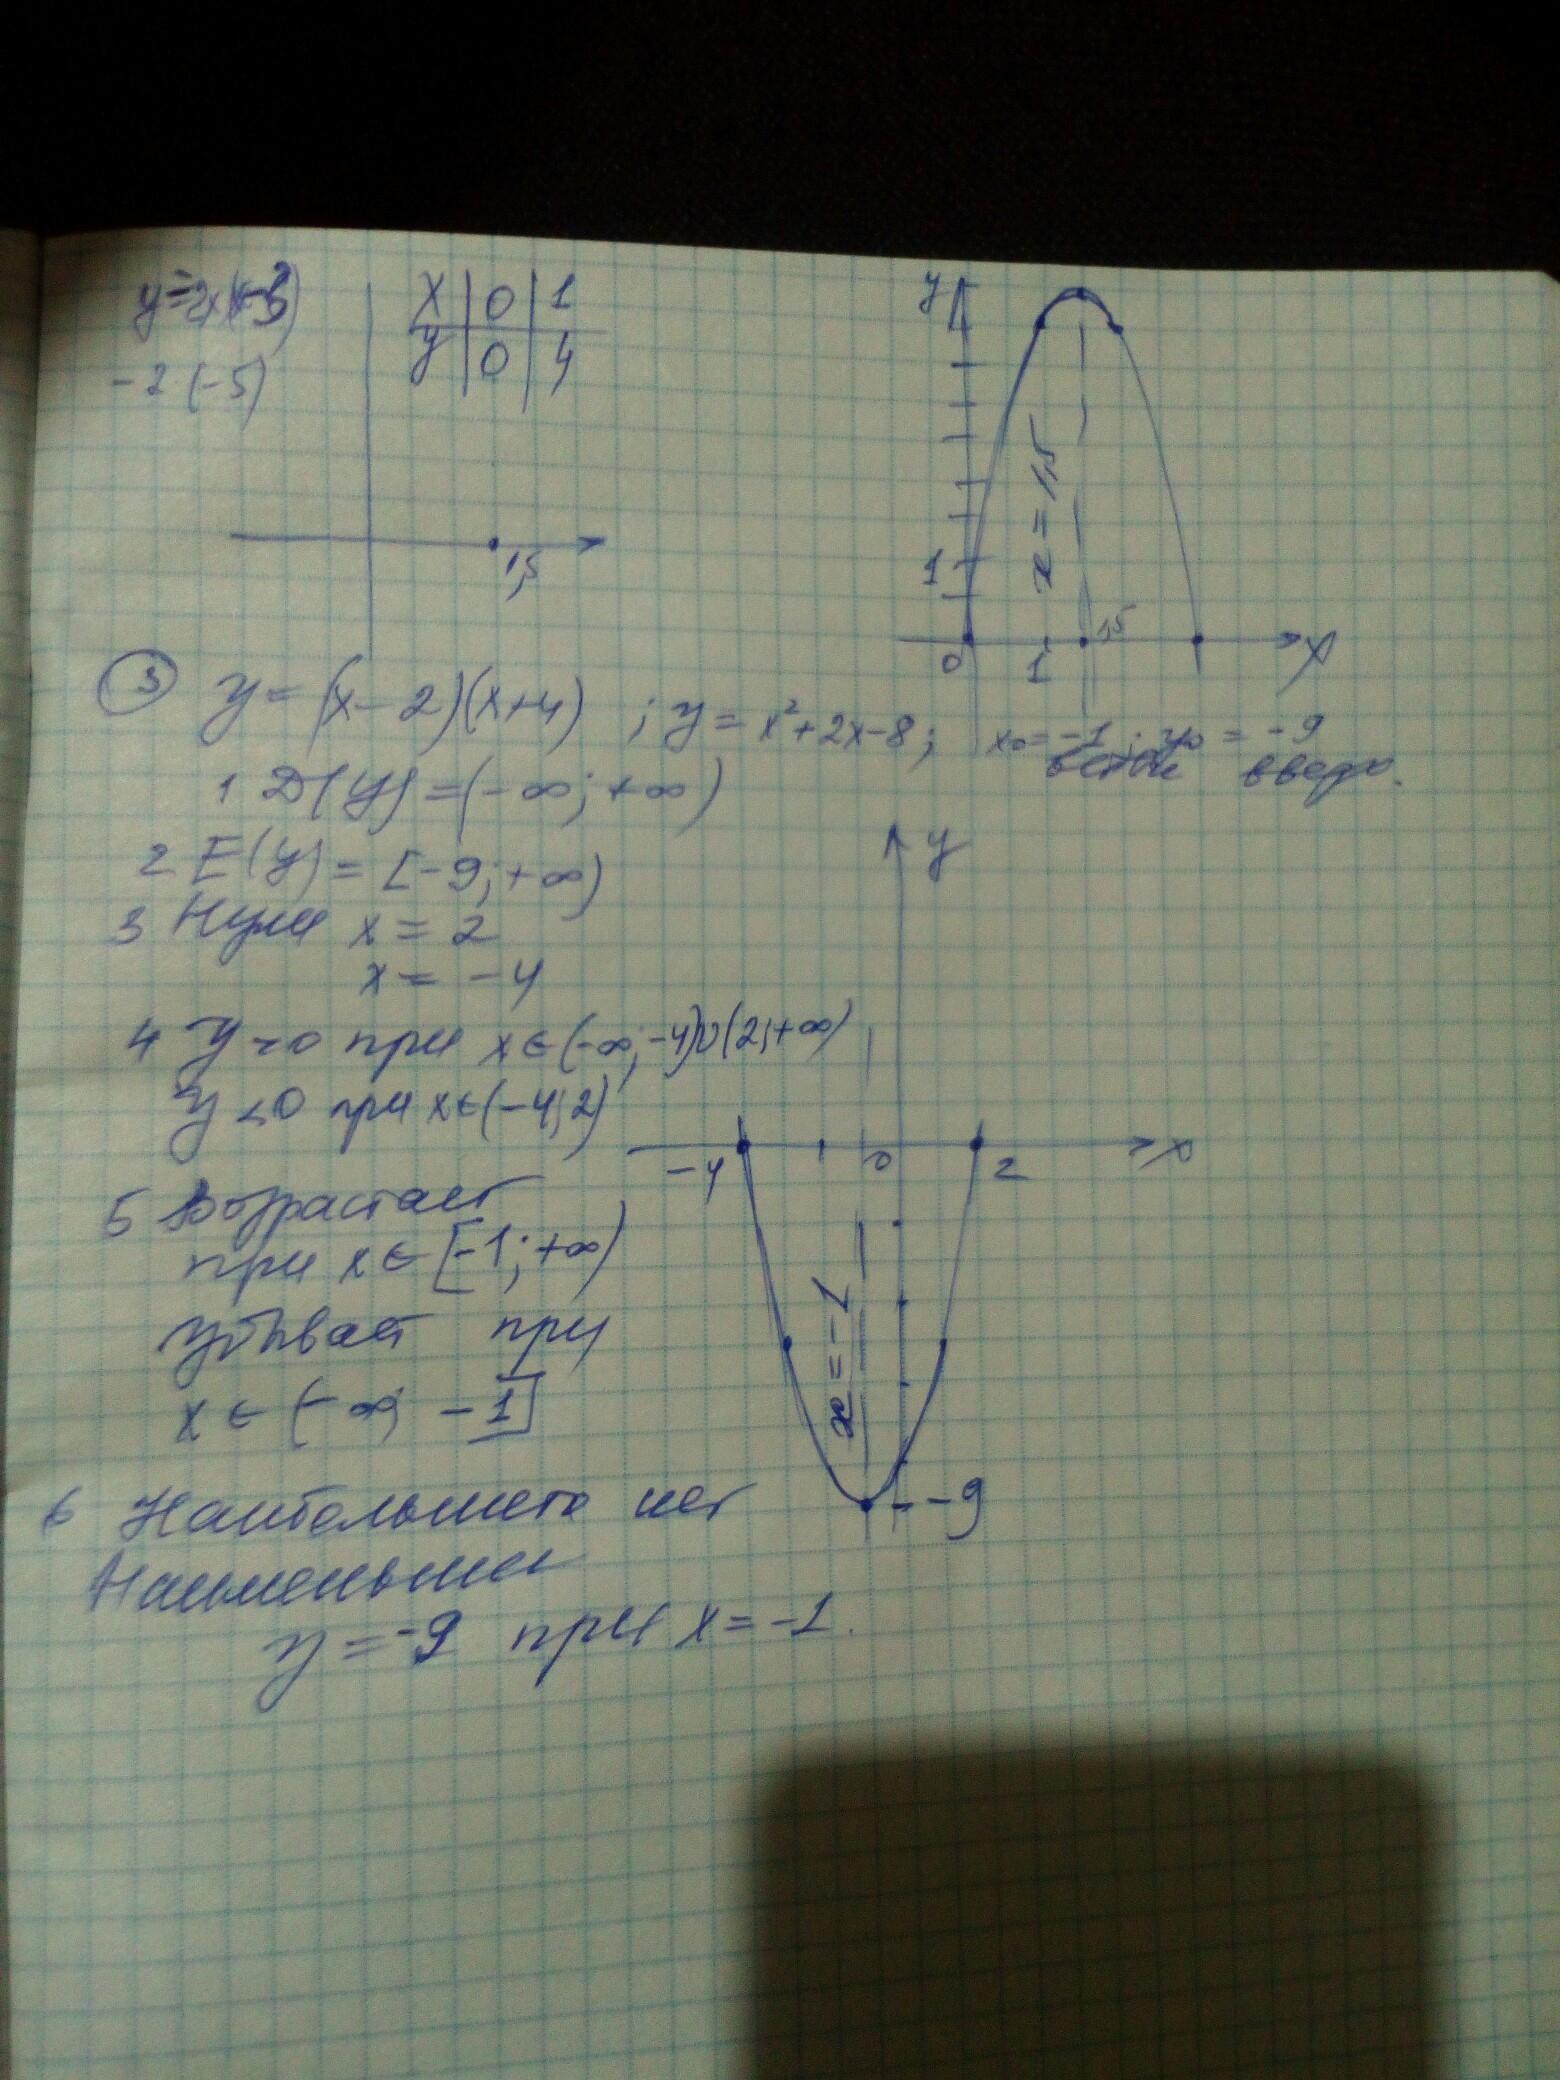 x | 0 | 1
y | 0 | 4
-2(-5)
1,5
y
x = 1,5
1
1,5
0 1 x
3 y = (x-2)(x+4) ; y = x²+2x-8; x₀ = -1; y₀ = -9
ветви вверх.
1 D(y) = (-∞; +∞)
2 E(y) = [-9; +∞)
3 Нули x = 2
x = -4
4 y>0 при x∈(-∞; -4)∪(2; +∞)
y<0 при x∈(-4; 2)
5 Возрастает
при x∈[-1; +∞)
убывает при
x∈(-∞; -1]
6 Наибольшего нет
Наименьшее
y = -9 при x = -1.
y
-4 0 2 x
x = -1
-9